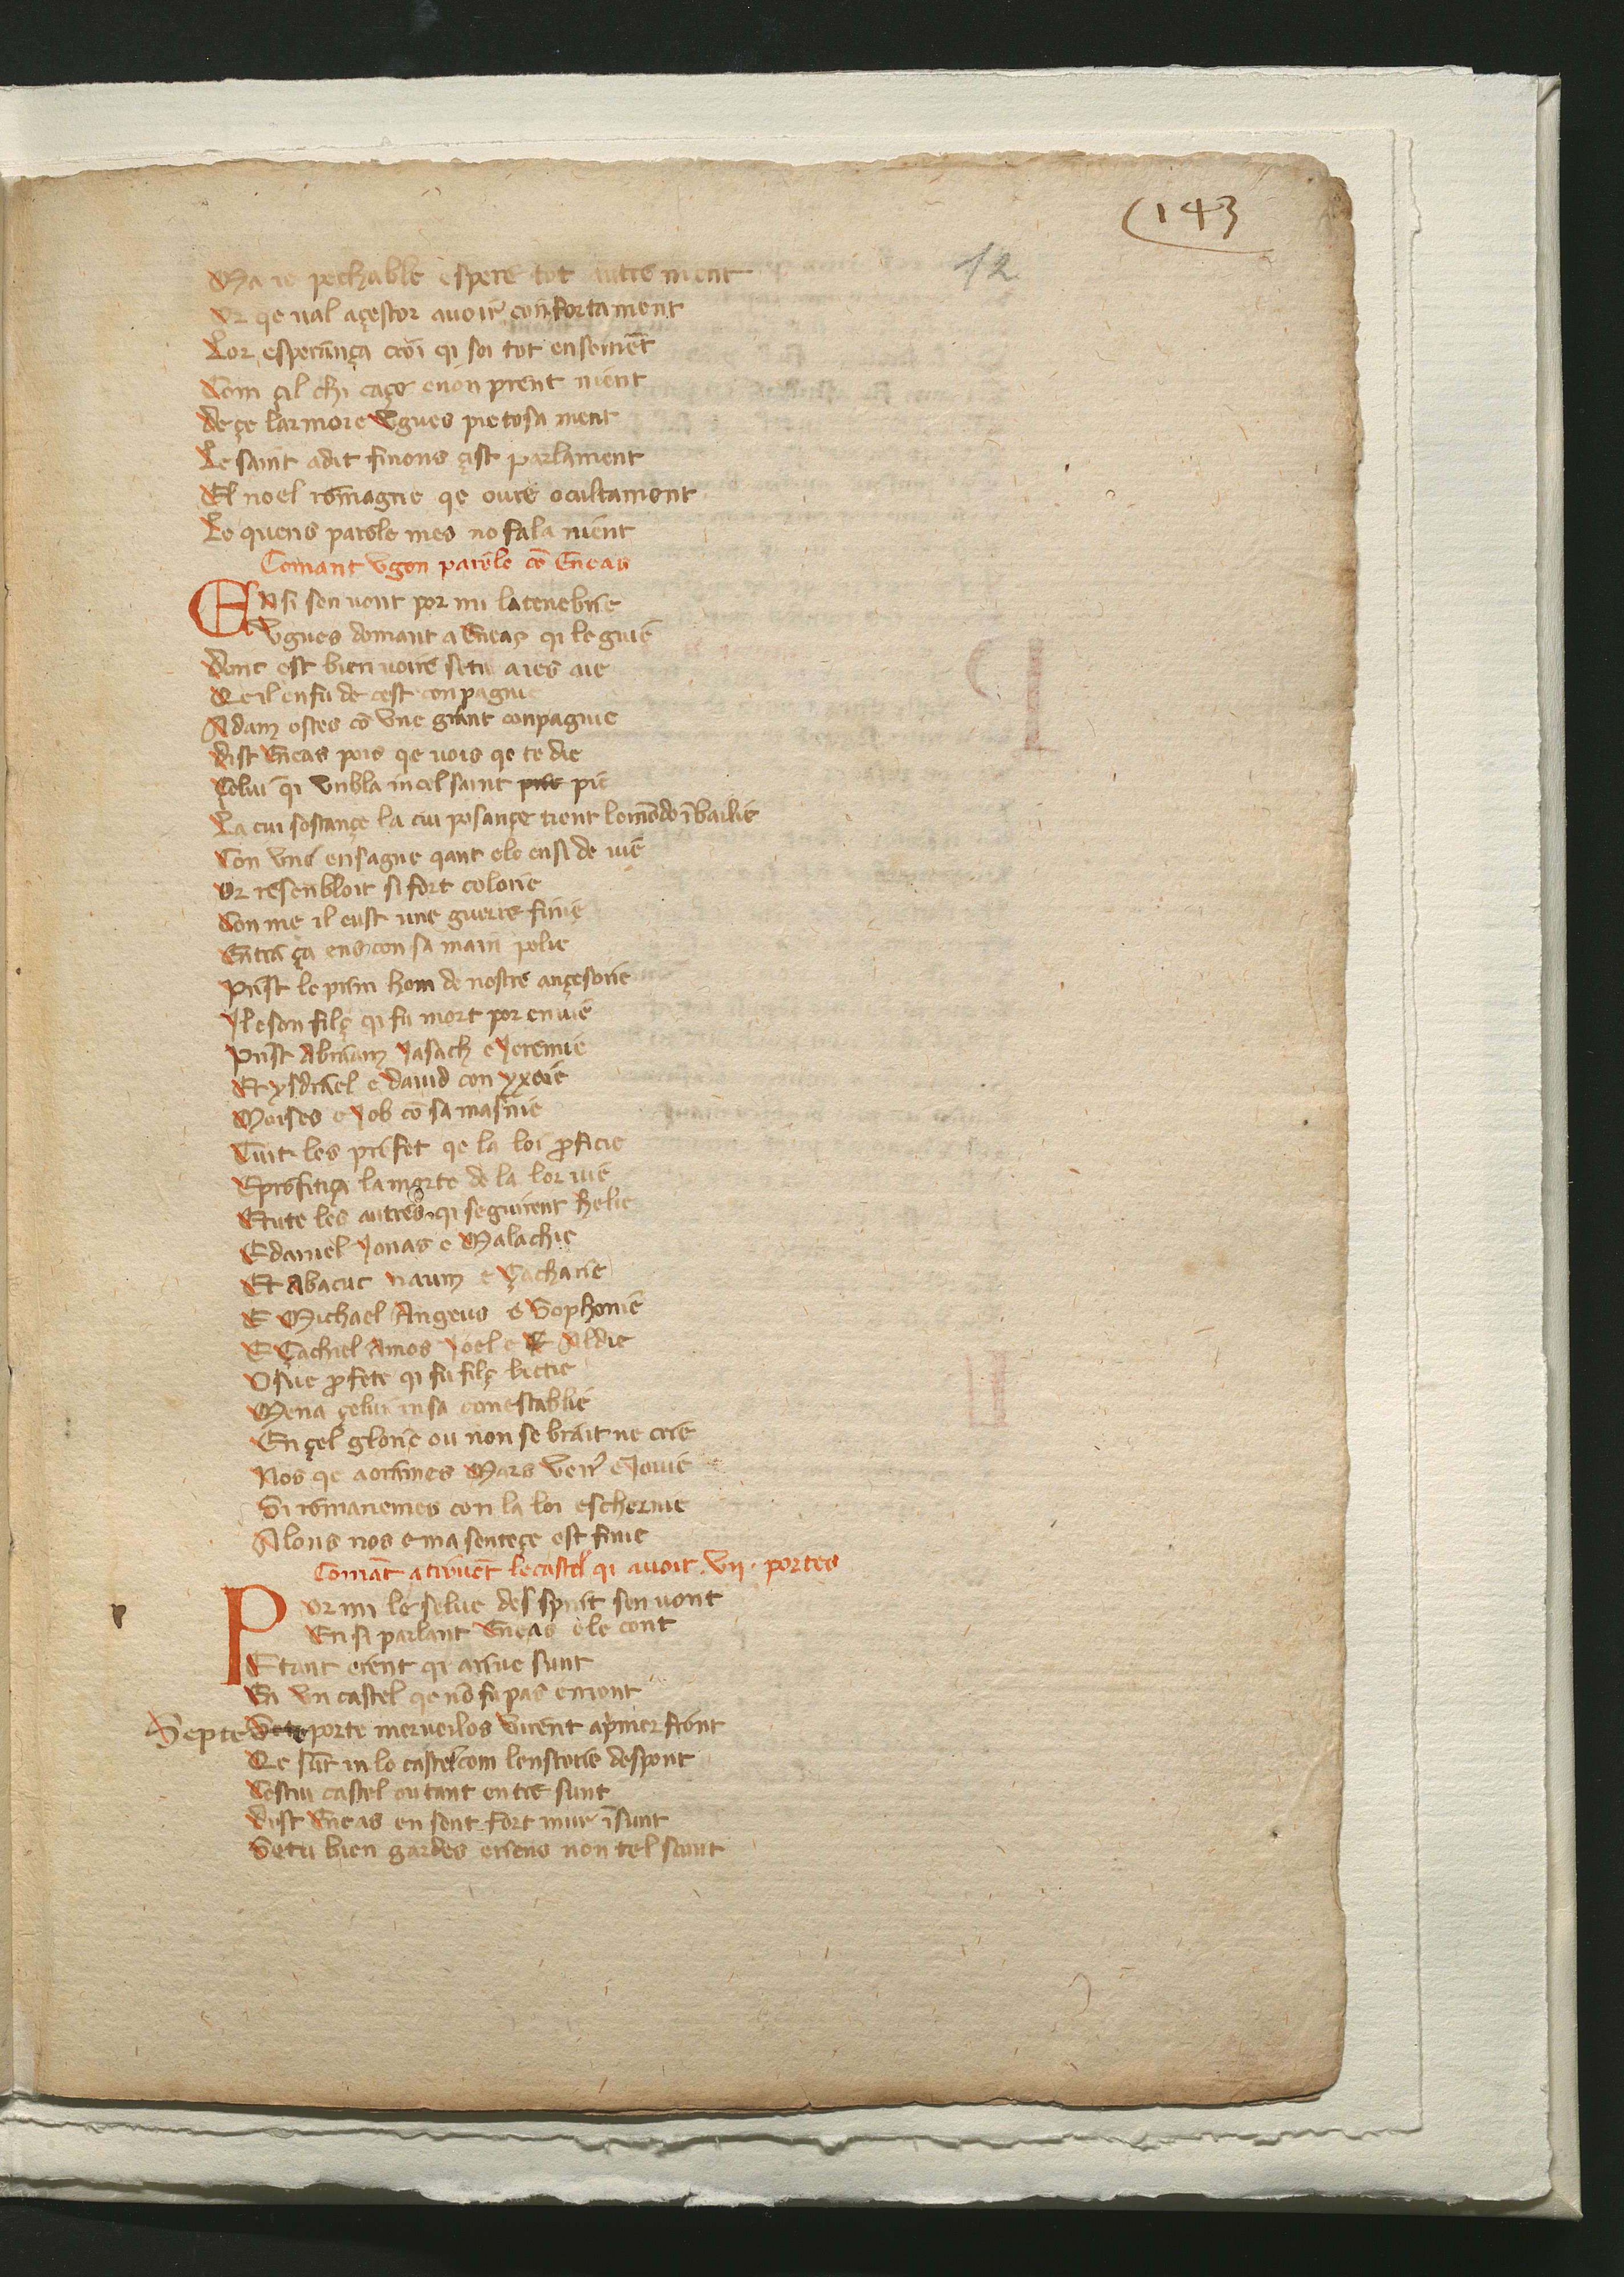 (143
12
Ma ie pechable espere tot autre ment
Or qe ual açestor auoir confortament
Lor esperança croi qi soi tot ensemēt
Com çil chi caçe enon prent nient
de çe larmore Vgues pietosa ment
Le saint adit finons çist parlament
El noel romagne qe oure ocultament
Le quens parole mes no fala nient
Comant vgon parole cō Eneas
Ensi sen uont por mi la tenebrie
Vgues domant a Eneas qi le guie
Donc est bien uoire se tu aies aie
Qe il en fu de cest conpagnie
Adam ostes cō vne grant conpagnie
dist Eneas pois qe uois qe te die
Çelui qi vnbla in cel saint pie
La cui sostançe la cui posançe tient lo mōdo ī bailie
Con vne ensagne qant ele ensi de uie
Or resenbloit si fort colorie
Con me il eust une guerre finie
Entra ça ens con sa main polie
Prist le prim hom de nostre ançesorie
Il e son filç qi fu mort por enuie
Prist Abraam Jasach e Jeremie
Et ysdrael e dauid con
Moises e Job cō sa masnie
Tuit les profet qe la loi ꝓficie
E profitiça la morte de la lor uie
E tute les autres qi seguirent helie
E daniel Jonas e Malachie
Et Abacuc naum e Çacharie
E Michael Angeus e Sophonie
E Çachiel Amos Joel e Aldie
Osue ꝓfete qi fu filç bierie
Mena çelui in sa conestablie
En çel glorie ou non se brait ne crie
Nos qe aorames Mars ven' e Jouie
Si romanemes con la loi eschernie
Alons nos e ma senteçe est finie
Comāt a truuēt le castel qi auoit .vij. portes
Por mi le selue des spirit sen uont
Ensi parlant Eneas e le cont
E tant erent qi ariue sunt
En vn castel qe nō fu pas en mont
Septe porte merueilos virent aprimer front
Qe sūt in lo castel com lenstorie despont
Cestui castel ou tant entre sunt
dist Eneas en sont fort mur ī sunt
Se tu bien gardes ensens non tel sunt